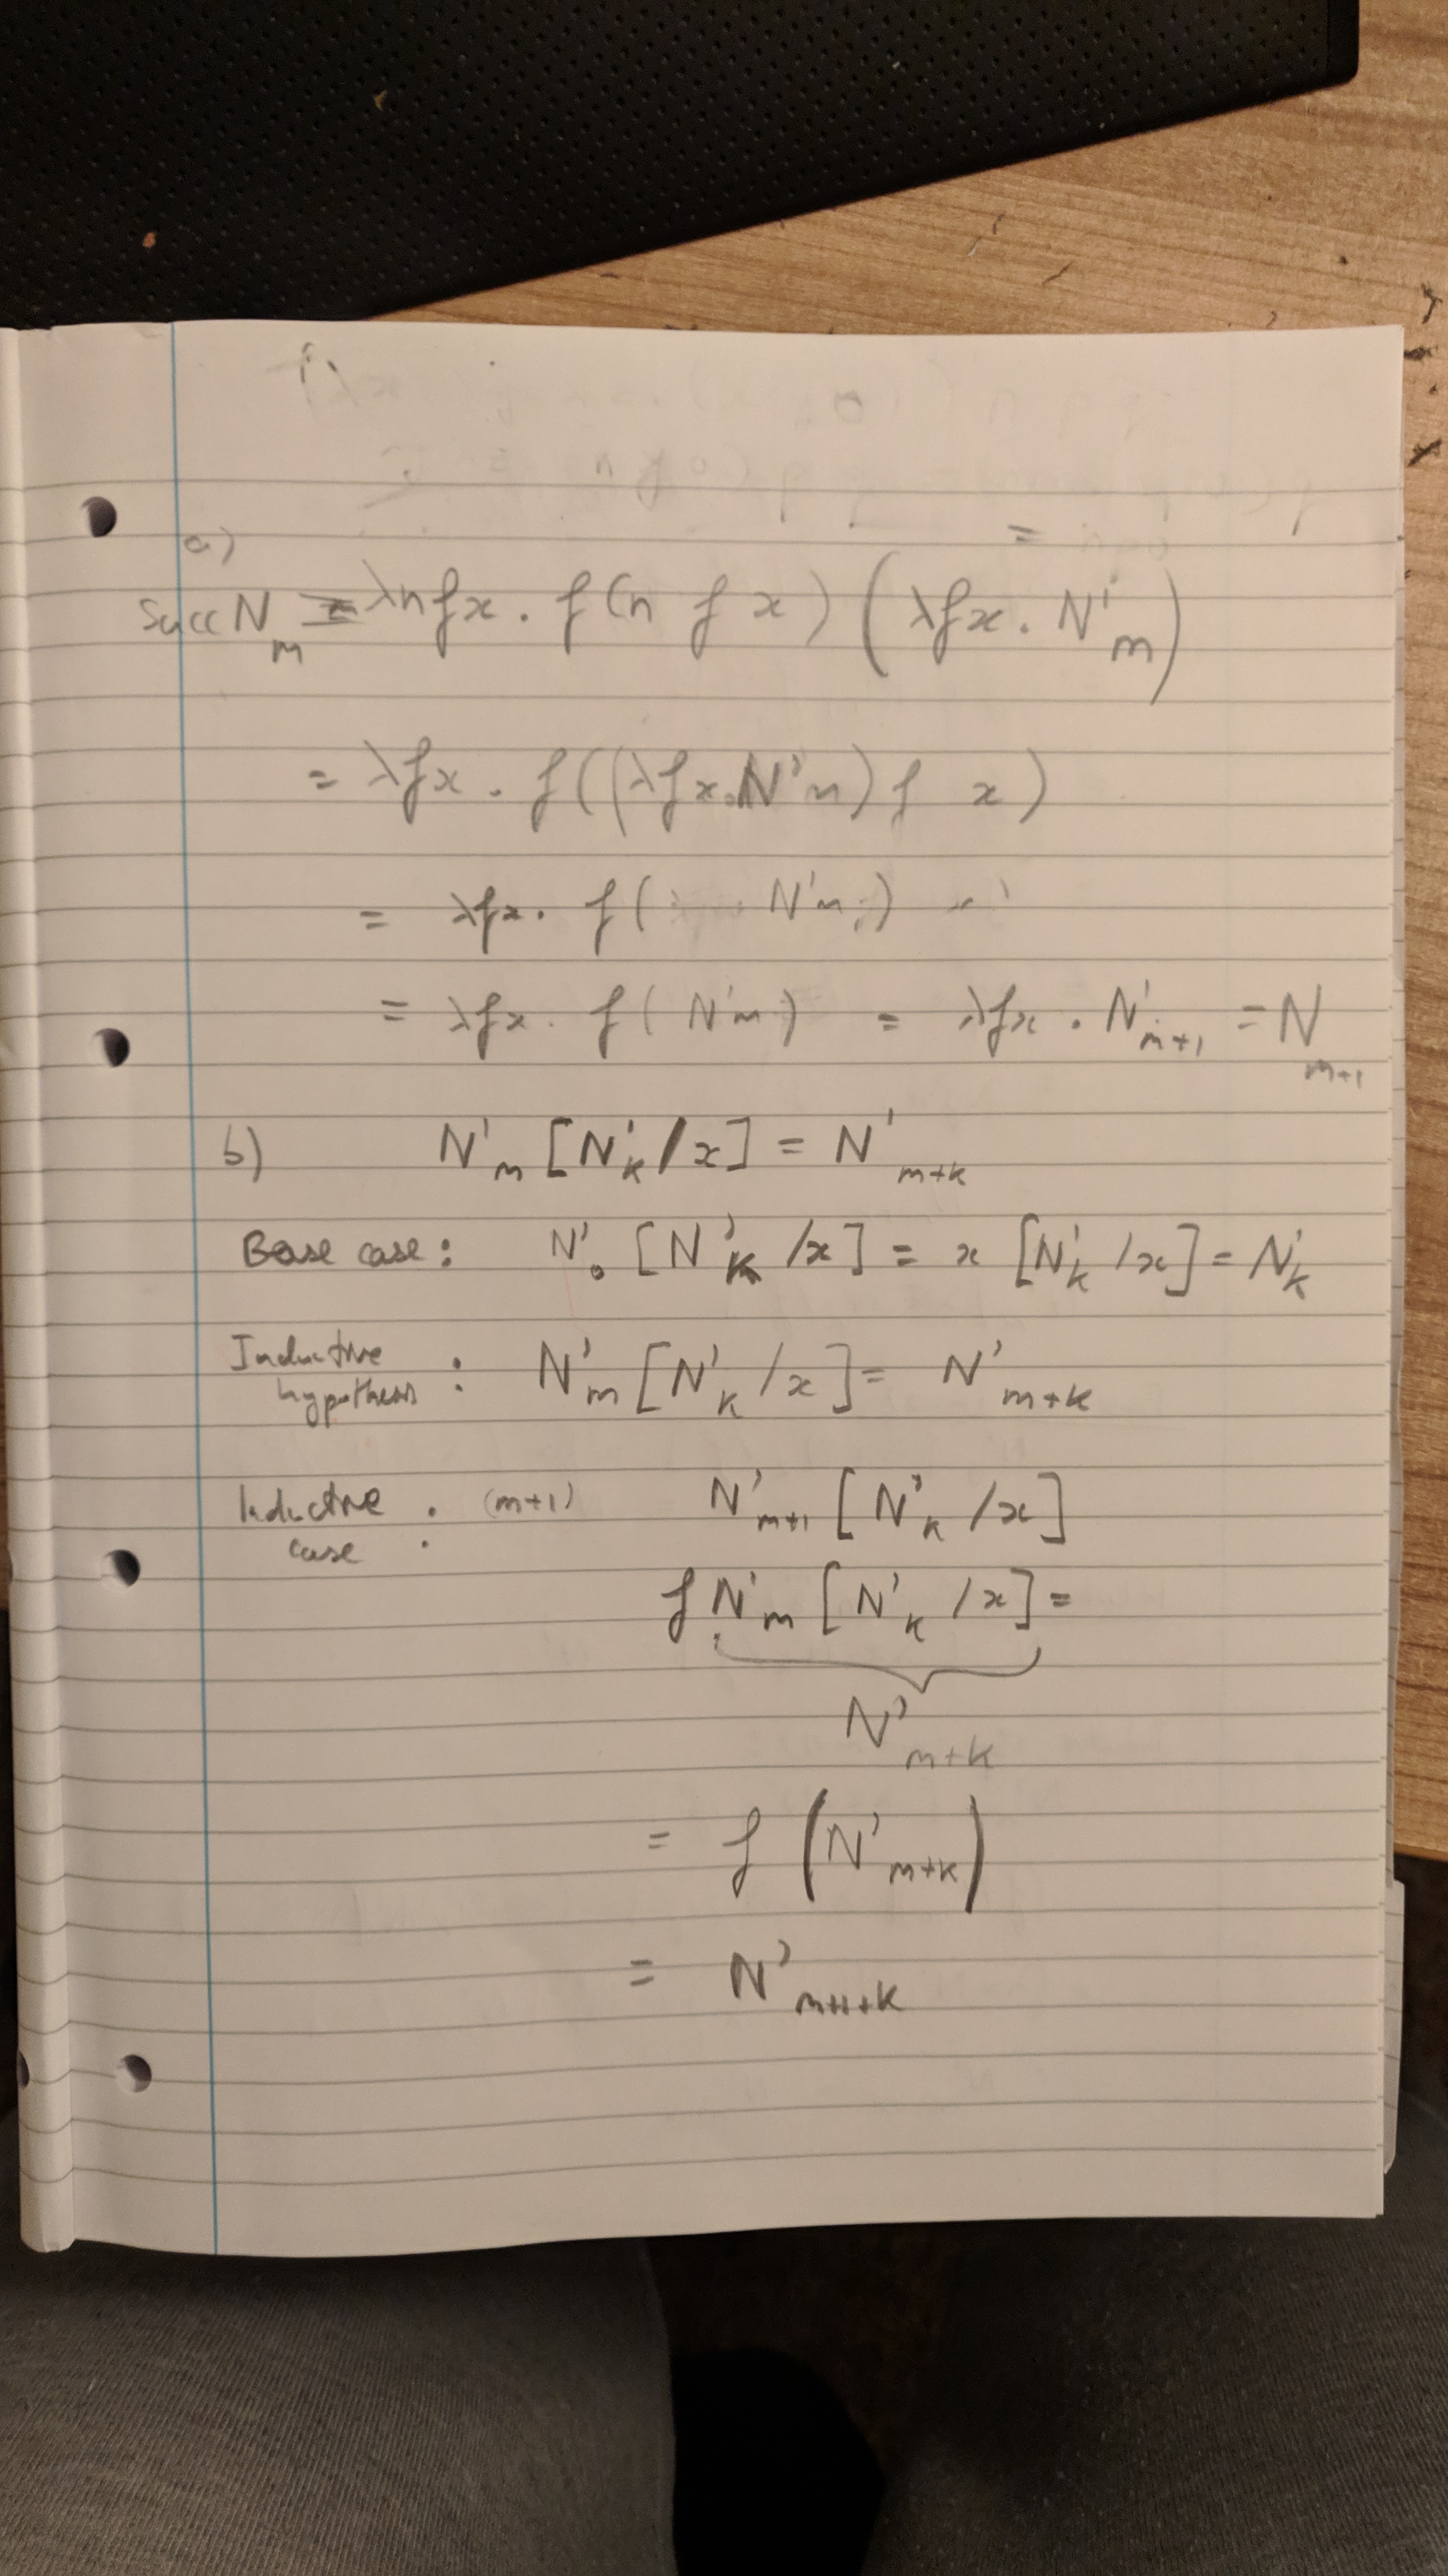 a)
Succ N_m = λnfx . f(n f x) (λfx . N'_m)
= λfx . f((λfx.N'm) f x)
= λfx . f( N'm )
= λfx . f( N'm ) = λfx . N'_{m+1} = N_{m+1}
b) N'_m [N'_k / x] = N'_{m+k}
Base case: N'_0 [N'_k / x] = x [N'_k / x] = N'_k
Inductive hypothesis : N'_m [N'_k / x] = N'_{m+k}
Inductive case : (m+1) N'_{m+1} [N'_k / x]
f N'_m [N'_k / x] =
N'_{m+k}
= f (N'_{m+k})
= N'_{m+1+k}